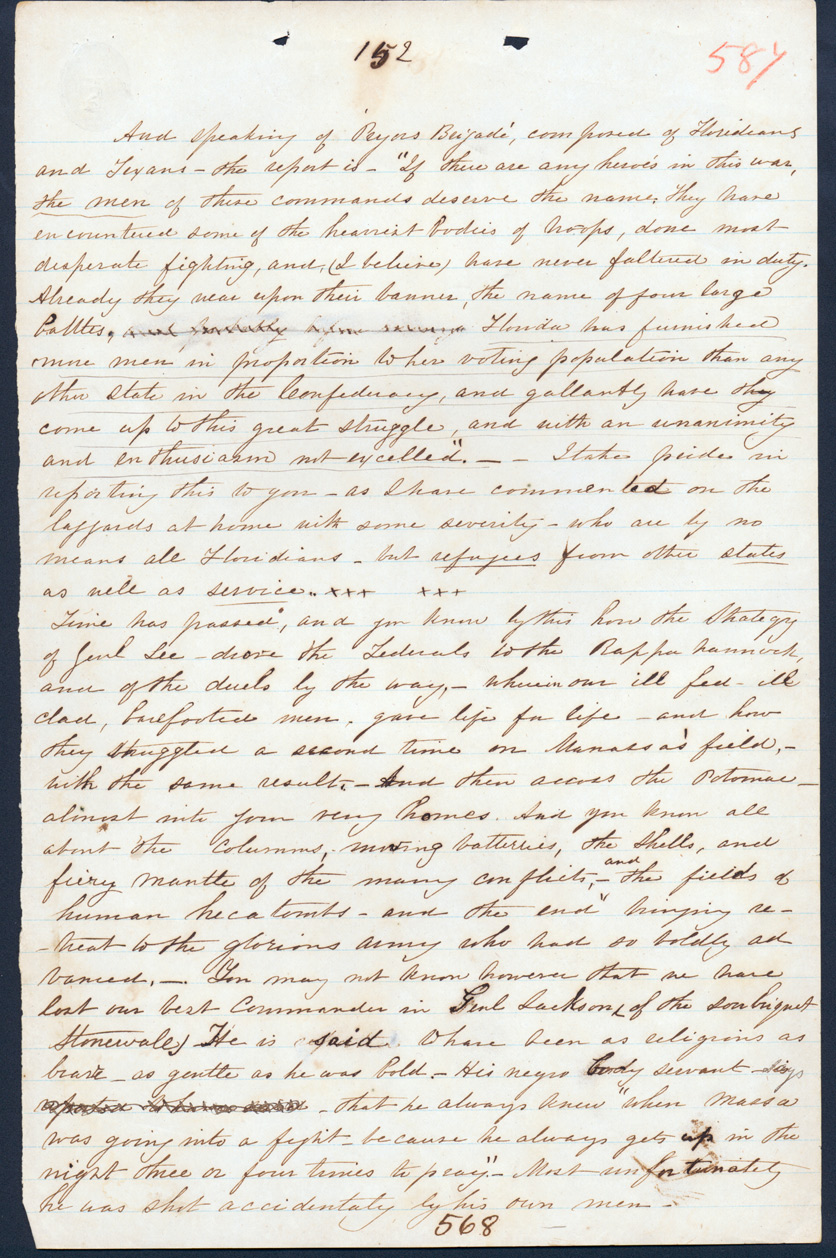 152
587
And speaking of 'Pryors Brigade', composed of Floridians
and Texans – the report is – "If there are any heroe's in this war,
the men of these commands deserve the name; They have
encountered some of the heaviest bodies of troops, done most
desperate fighting, and, (I believe) have never faltered in duty.
Already they wear upon their banner, the name of four large
battles, Florida has furnished
more men in proportion to her voting population than any
other state in the Confederacy, and gallantly have they
come up to this great struggle, and with an unanimity
and enthusiasm not excelled". – – I take pride in
reporting this to you – as I have commented on the
laggards at home with some severity – who are by no
means all Floridians – but refugees from other states
as well as service.. xxx xxx
Time has passed, and you know by this how the Strategy
of Genl Lee – drove the Federals to the Rappahannock,
and of the duels by the way, – wherein our ill fed – ill
clad, barefooted men, gave life for life – and how
they struggled a second time on Manassa's field, –
with the same result, – And then across the Potomac –
almost into your very homes. And you know all
about the columns, moving batteries, the shells, and
fiery mantle of the many conflicts, – and the fields of
human hecatombs – and the end" bringing re-
-treat to the glorious army who had so boldly ad
vanced, –. You may not know however that we have
lost our best Commander in Genl Jackson, (of the soubriquet
Stonewall) He is said to have been as religious as
brave – as gentle as he was bold. – His negro body servant – says
– that he always knew "when Massa
was going into a fight because he always gets up in the
night three or four times to pray". – Most unfortunately
he was shot accidentaly by his own men –
568